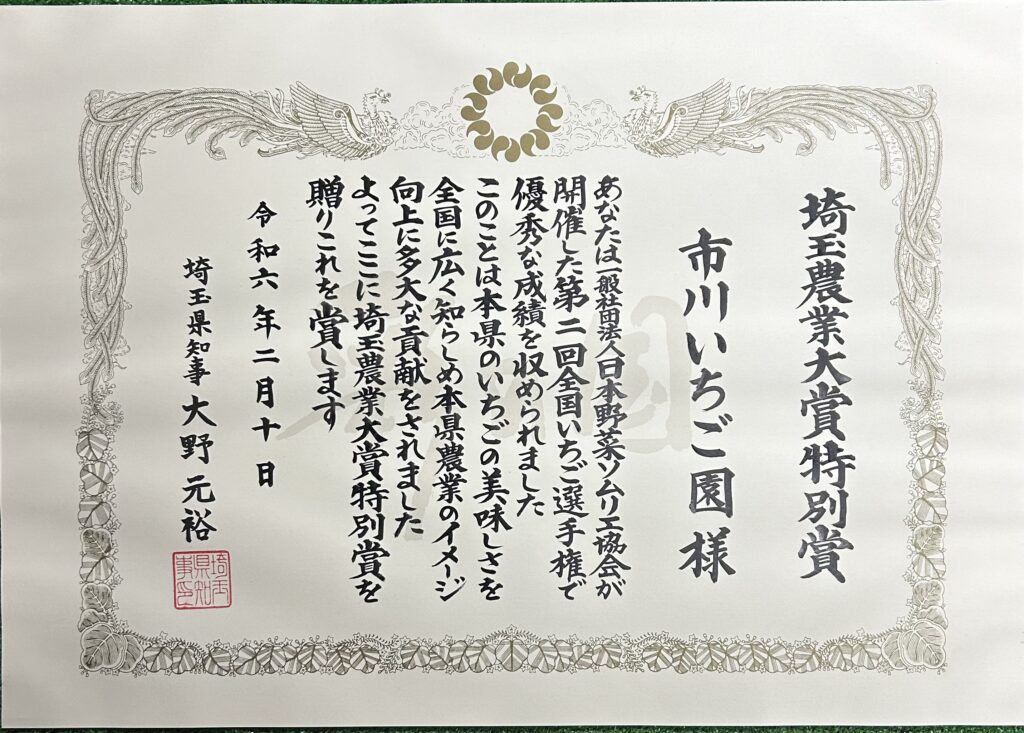 埼玉農業大賞特別賞
市川いちご園 様
あなたは一般社団法人日本野菜ソムリエ協会が
開催した第二回全国いちご選手権で
優秀な成績を収められました
このことは本県のいちごの美味しさを
全国に広く知らしめ本県農業のイメージ
向上に多大な貢献をされました
よってここに埼玉農業大賞特別賞を
贈りこれを賞します
令和六年二月十日
埼玉県知事 大野元裕
埼玉
県知
事印